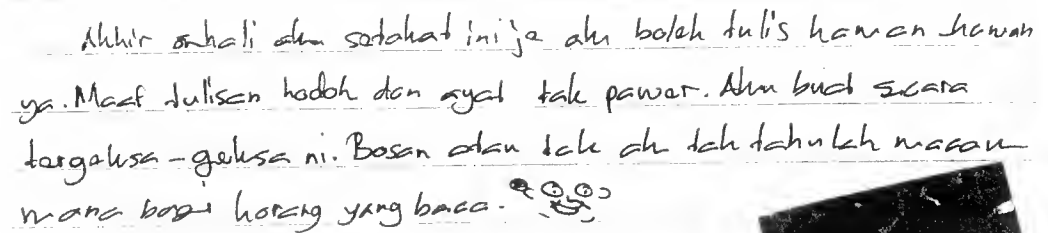 Akhir sekali aku setakat ini je aku boleh tulis kawan kawan
ya. Maaf tulisan hodoh dan ayat tak pawer. Aku buat secara
tergeksa-geksa ni. Bosan atau tak ak tak tahulah macam
mana bagi korang yang baca.